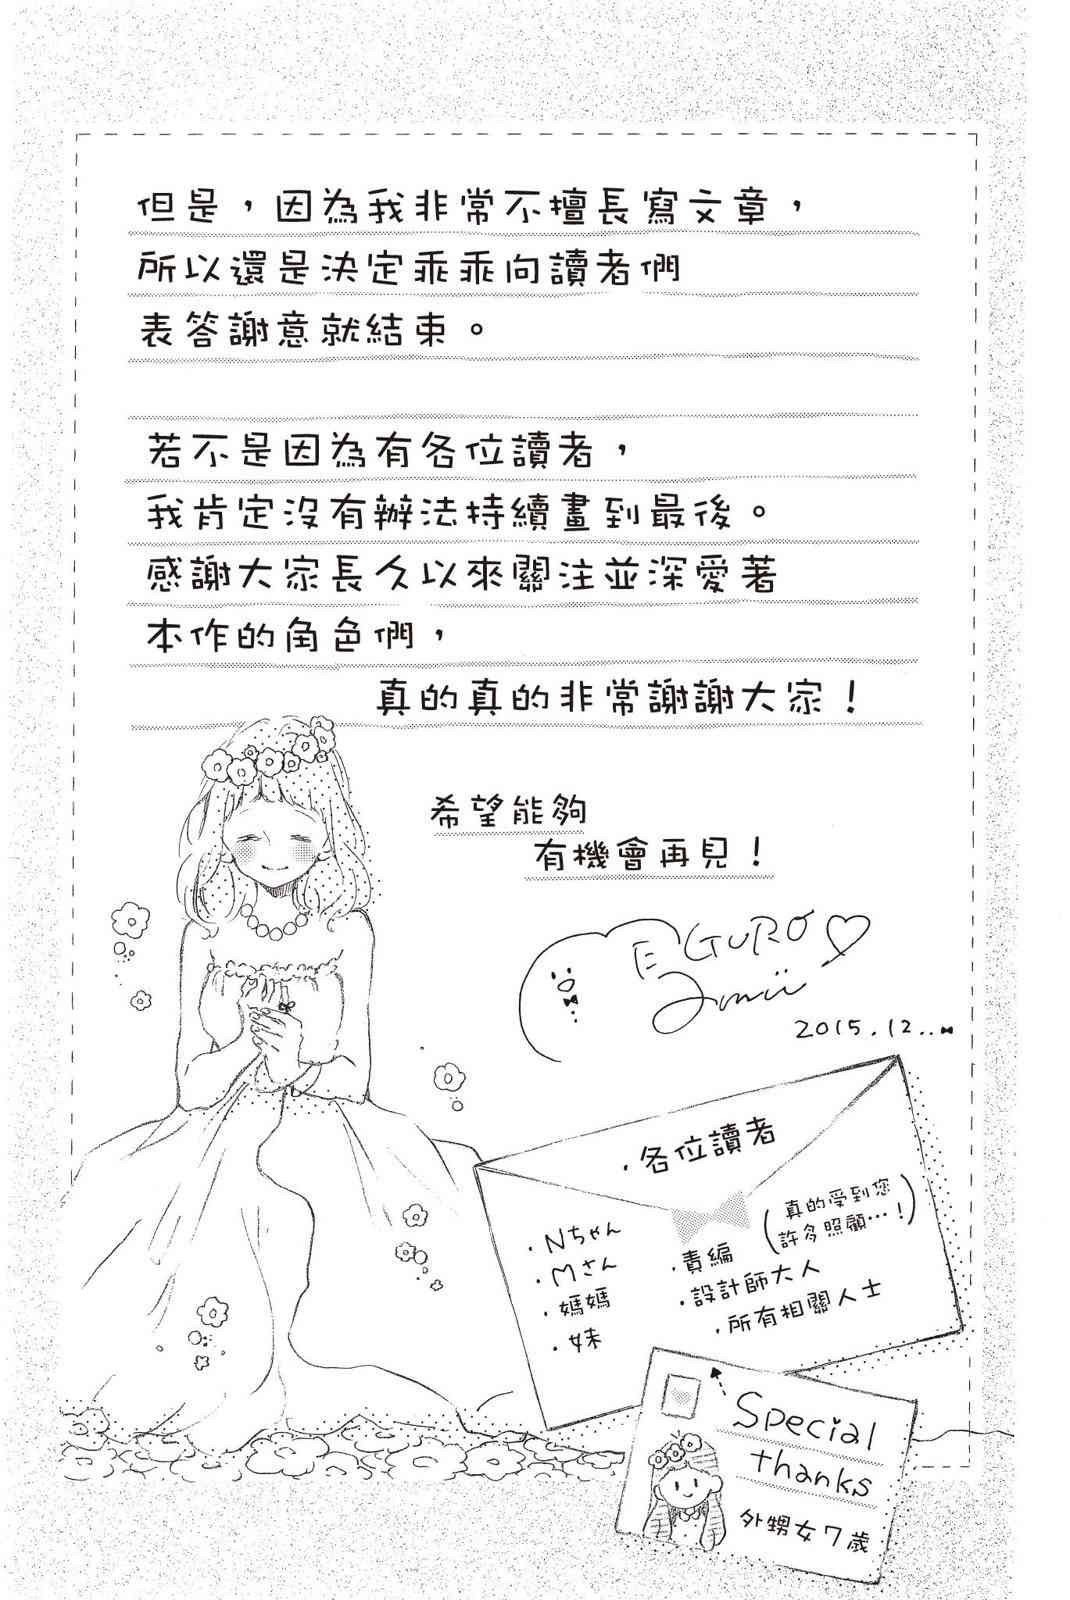 但是，因為我非常不擅長寫文章，
所以還是決定乖乖向讀者們
表答謝意就結束。
若不是因為有各位讀者，
我肯定沒有辦法持續畫到最後。
感謝大家長久以來關注並深愛著
本作的角色們，
真的真的非常謝謝大家！
希望能夠
有機會再見！
EGURO
2015.12..
・各位讀者
（真的受到您
許多照顧…！）
・Nちゃん
・Mさん
・媽媽
・妹
・責編
・設計師大人
・所有相關人士
Special
thanks
外甥女7歲